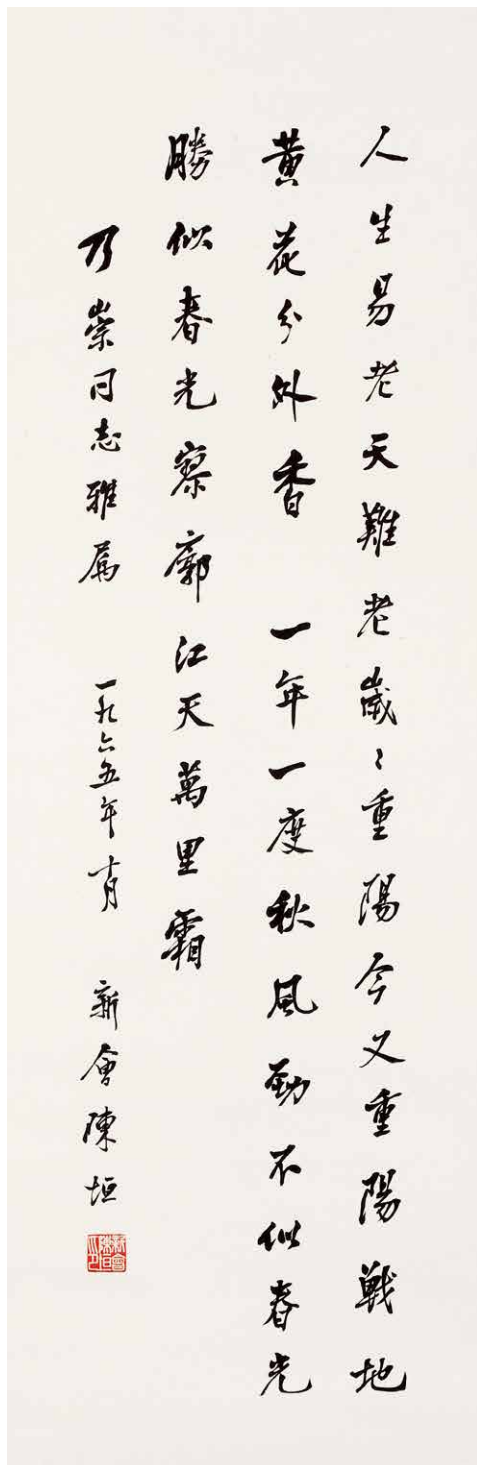 人生易老天難老歲〻重陽今又重陽戰地
黃花分外香 一年一度秋風勁不似春光
勝似春光寥廓江天萬里霜
乃崇同志雅屬 一九六五年十月 新會陳垣